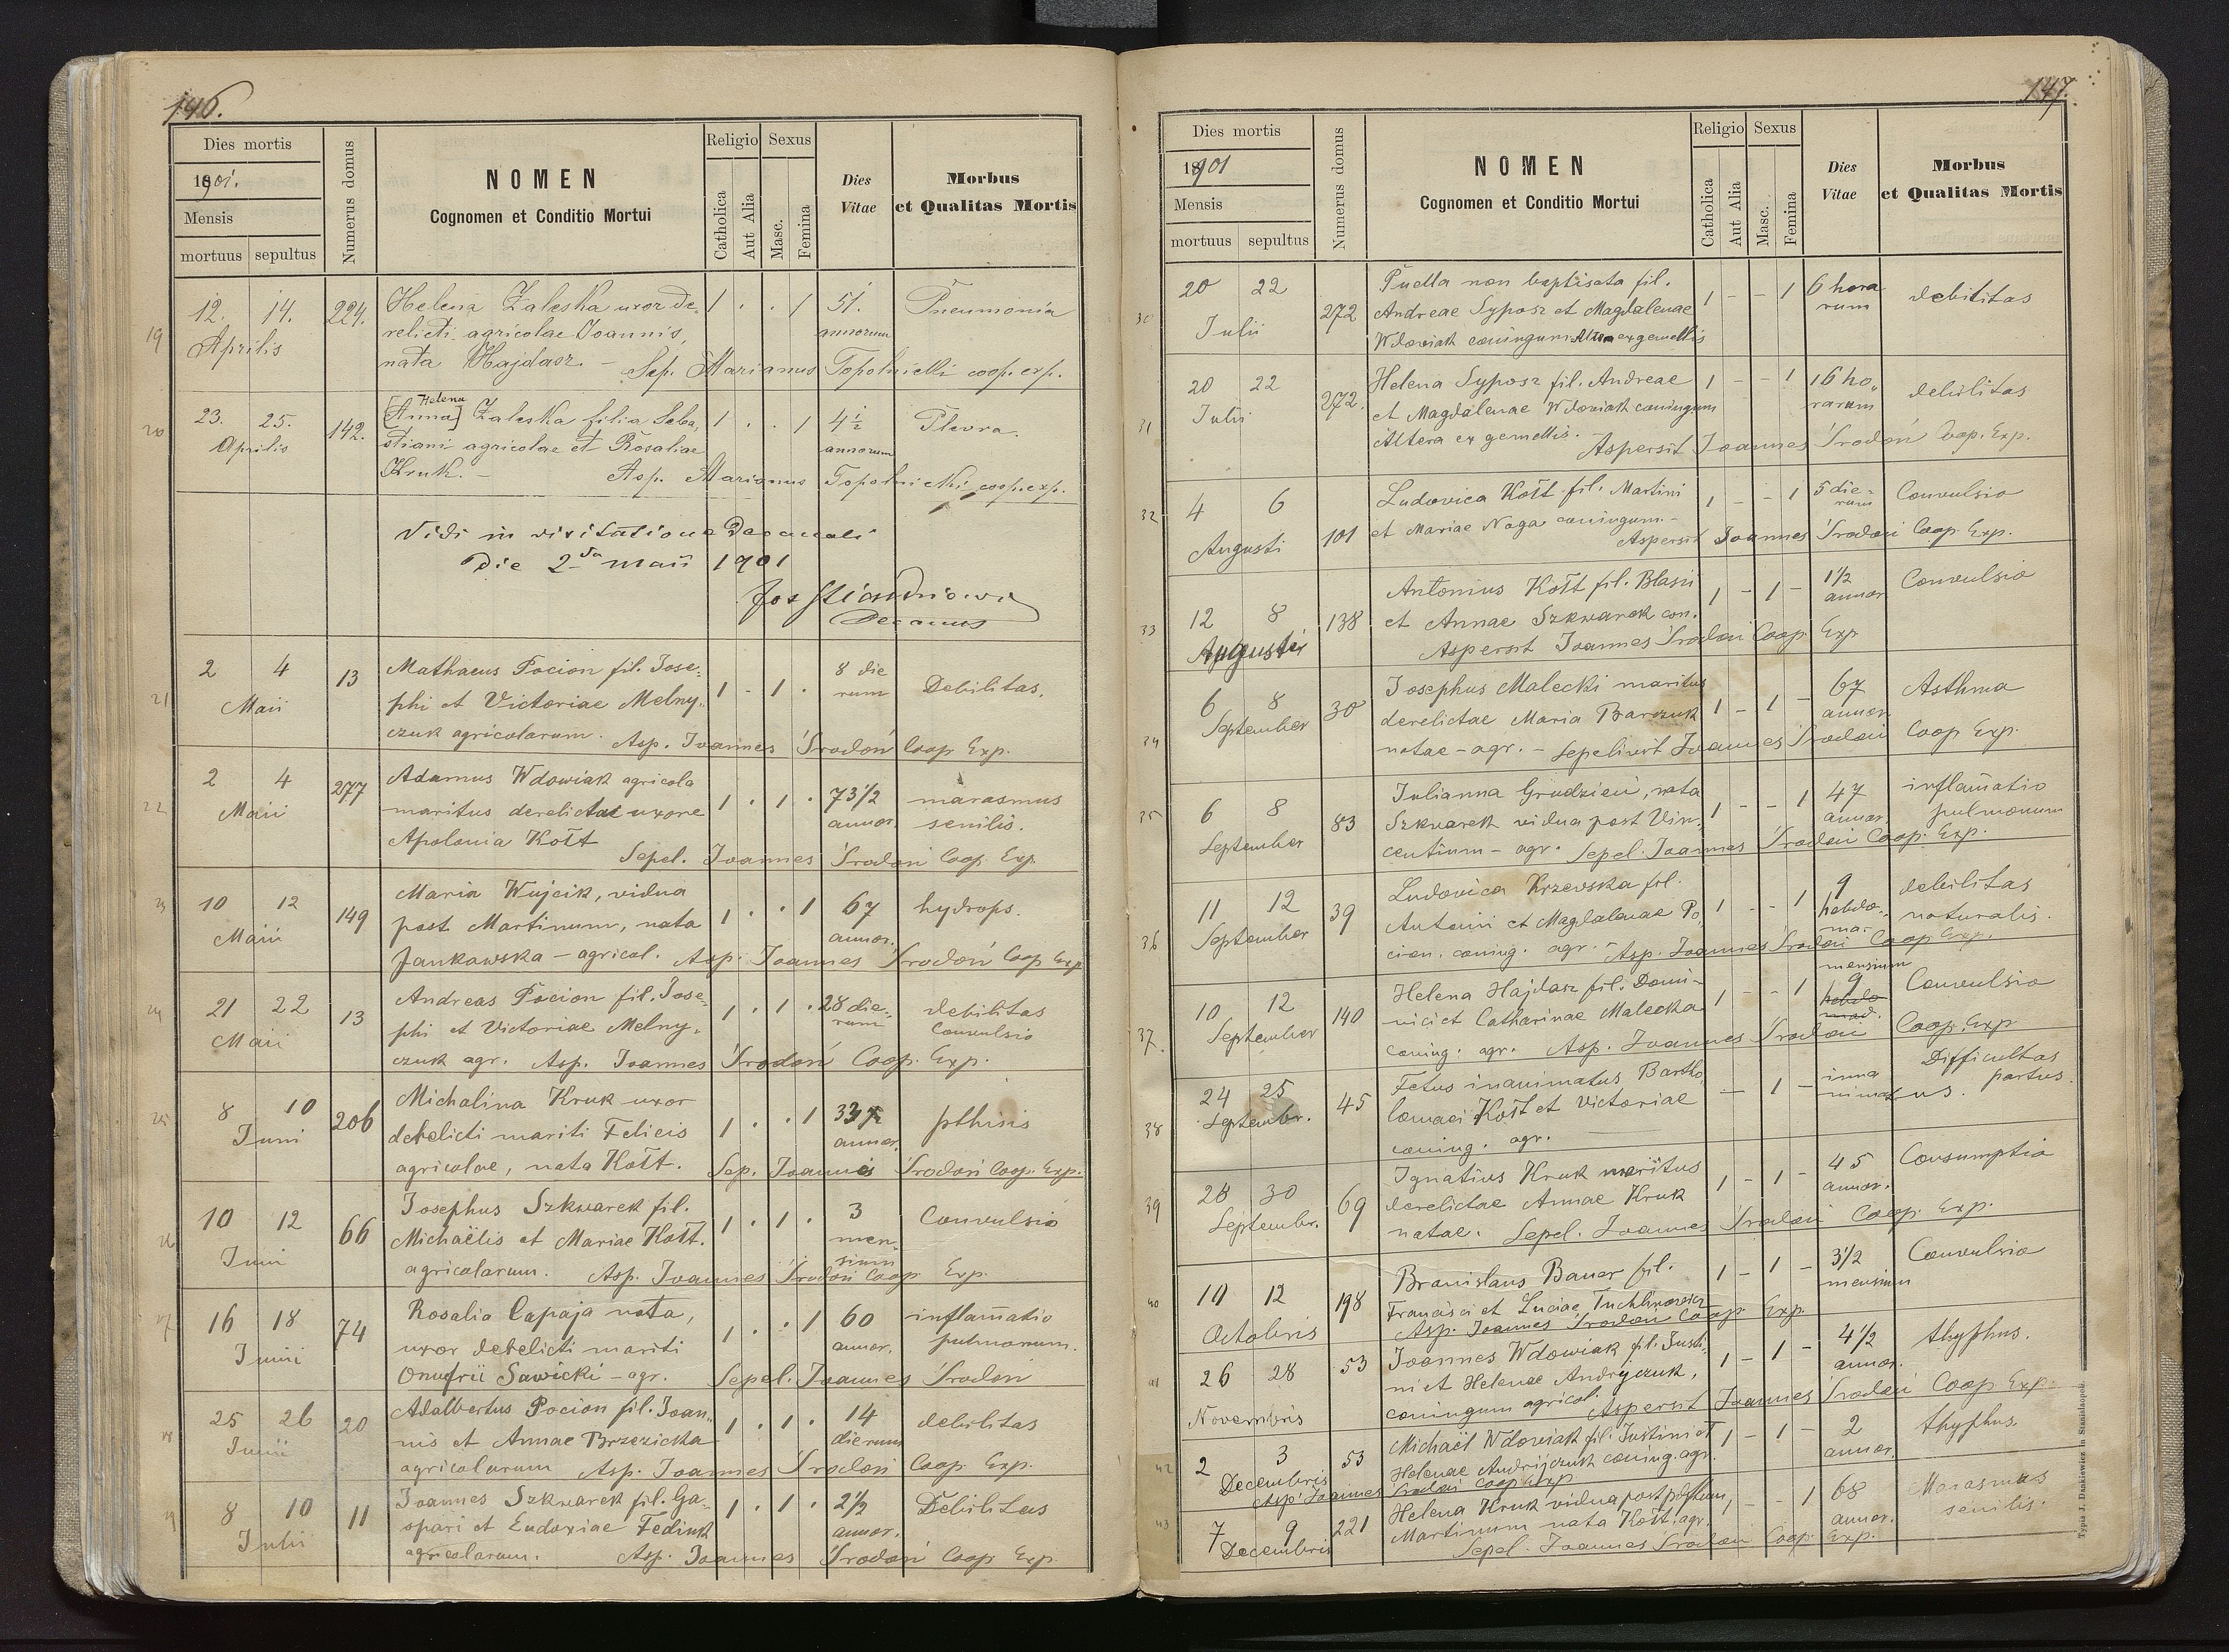 146.
Dies mortis
1901.
Mensis
mortuus sepultus
Numerus domus
NOMEN
Cognomen et Conditio Mortui
Religio
Catholica
Aut Alia
Sexus
Masc.
Femina
Dies
Vitae
Morbus
et Qualitas Mortis
19
12. 14. 224. Helena Zaleska uxor de- 1 . . 1 51. Pneumonia
Aprilis relicti agricolae Joannis, annorum
nata Hajdasz. – Sep. Marianus Topolnicki coop. exp.
20
Helena
23. 25. 142. [Anna] Zaleska filia Seba- 1 . . 1 4½ Plevra.
Aprilis stiani agricolae et Rosaliae annorum
Kruk. – Asp. Marianus Topolnicki coop. exp.
Vidi in visitatione Decanali
Die 2da maii 1901
Decanus
21
2 4 13 Mathaeus Pocion fil. Jose- 1 - 1 . 8 die Debilitas.
Maii phi et Victoriae Melny- rum
czuk agricolarum. Asp. Joannes Środoń Coop Exp.
22
2 4 277 Adamus Wdowiak agricola 1 . 1 . 73½ marasmus
Maii maritus derelictae uxore annor. senilis.
Apolonia Kott
Sepel. Joannes Środoń Coop. Exp.
23
10 12 149 Maria Wujcik, vidua 1 . . 1 67 hydrops.
Maii post Martinum, nata annor.
Jankowska – agricol. Asp. Joannes Środoń Coop Exp
24
21 22 13 Andreas Pocion fil. Jose- 1 . 1 . 28 die- debilitas
Maii phi et Victoriae Melny- rum Convulsio
czuk agr. Asp. Joannes Środoń Coop. Exp.
25
8 10 206 Michalina Kruk uxor 1 . . 1 33 pthisis
Juni derelicti mariti Felicis annor.
agricolae, nata Kott. Sep. Joannes Środoń Coop. Exp.
26
10 12 66 Josephus Szkwarek fil. 1 . 1 . 3 Convulsio
Juni Michaëlis et Mariae Kott. men-
sium
agricolarum. Asp. Joannes Środoń Coop Exp.
27
16 18 74 Rosalia Capaja nata, 1 . . 1 60 inflamatio
Junii uxor derelicti mariti annor. pulmonum.
Onufrii Sawicki – agr. Sepel. Joannes Środoń
28
25 26 20 Adalbertus Pocion fil. Joan- 1 . 1 . 14 debilitas
Junii nis et Annae Brzezicka dierum
agricolarum Asp. Joannes Środoń Coop. Exp.
29
8 10 11 Joannes Szkwarek fil. Ga- 1 . 1 . 2½ Debilitas
Julii spari et Eudoxiae Fediuk annor.
agricolarum. Asp. Joannes Środoń Coop Exp.
147.
Dies mortis
1901
Mensis
mortuus sepultus
Numerus domus
NOMEN
Cognomen et Conditio Mortui
Religio
Catholica
Aut Alia
Sexus
Masc.
Femina
Dies
Vitae
Morbus
et Qualitas Mortis
30
20 22 272 Puella non baptisata fil. 1 - - 1 6 hora debilitas
Julii Andreae Syposz et Magdalenae rum
Wdowiak coniugum. Altera ex gemellis
31
20 22 272. Helena Syposz fil. Andreae 1 - - 1 16 ho- debilitas
Julii et Magdalenae Wdowiak coniugum rarum
Altera ex gemellis. Aspersit Joannes Środoń Coop. Exp.
32
4 6 101 Ludovica Kott fil. Martini 1 - - 1 5 die- Convulsio
rum
Augusti et Mariae Naga coniugum. –
Aspersit Joannes Środoń Coop. Exp.
33
12 8 138 Antonius Kott fil. Blasii 1 - 1 - 1½ Convulsio
Augusti et Annae Szkwarek con. annor
Aspersit Joannes Środoń Coop. Exp
34
6 8 30 Josephus Malecki maritus 1 - 1 - 67 Asthma
September derelictae Maria Barczuk annor
natae – agr. – Sepelivit Joannes Środoń Coop Exp.
35
6 8 83 Julianna Grudzień, nata 1 - - 1 47 inflamatio
September Szkwarek vidua post Vin- annor. pulmonum
centium – agr. Sepel. Joannes Środoń Coop. Exp.
36
11 12 39 Ludovica Krzewska fil. 1 - - 1 9 debilitas
September Antonii et Magdalenae Po- hebdo- naturalis.
ma-
cion. coniug. agr. – Asp. Joannes Środoń Coop Exp.
37.
mensium
10 12 140 Helena Hajdasz fil. Domi- 1 - - 1 9 Convulsio
September nici et Catharinae Malecka hebdo
mad.
coniug. agr. Asp. Joannes Środoń Coop. Exp
38
24 25 45 Fetus inanimatus Bartho- - 1 - inna Difficultas
Septembr. lomaei Kott et Victoriae nimatus. partus.
coniug. agr.
39
28 30 69 Ignatius Kruk maritus 1 - 1 - 45 Consumptio
Septembr. derelictae Annae Kruk annor.
natae. Sepel. Joannes Środoń Coop. Exp.
40
10 12 198 Bronislaus Bauer fil. 1 - 1 - 3½ Convulsio
Octobris Francisci et Luciae Tuchlinowicz mensium
Asp. Joannes Środoń Coop. Exp.
41
26 28 53 Joannes Wdowiak fil. Justi- 1 - 1 - 4½ thyphus.
Novembris ni et Helenae Andryczuk, annor.
coniugum agricol. Aspersit Joannes Środoń Coop Exp
42
2 3 53 Michaël Wdowiak fil. Justini et 1 - 1 - 2 thyphus.
Decembris Helenae Andrijczuk coniug. agr. annor.
Asp. Joannes Środoń Coop Exp
43
7 9 221 Helena Kruk vidua post 1 - - 1 68 Marasmus
Decembris Martinum nata Kott. agr. annor. senilis.
Sepel. Joannes Środoń Coop. Exp.
Typis J. Dankiewicz in Stanislaopoli.